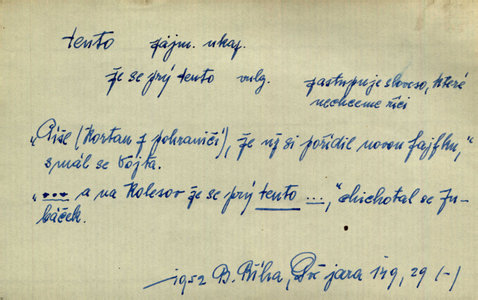 tento zájm. ukaz.
že se prý tento vulg. zastupuje sloveso, které
nechceme říci
„Píše (Kortan z pohraničí), že už si pořídil novou fajfku,“
smál se Vojta.
„... a na Kolesov že se prý tento ...,“ chichotal se Zu-
báček.
1952 B. Říha, Dvě jara 149, 29 (–)